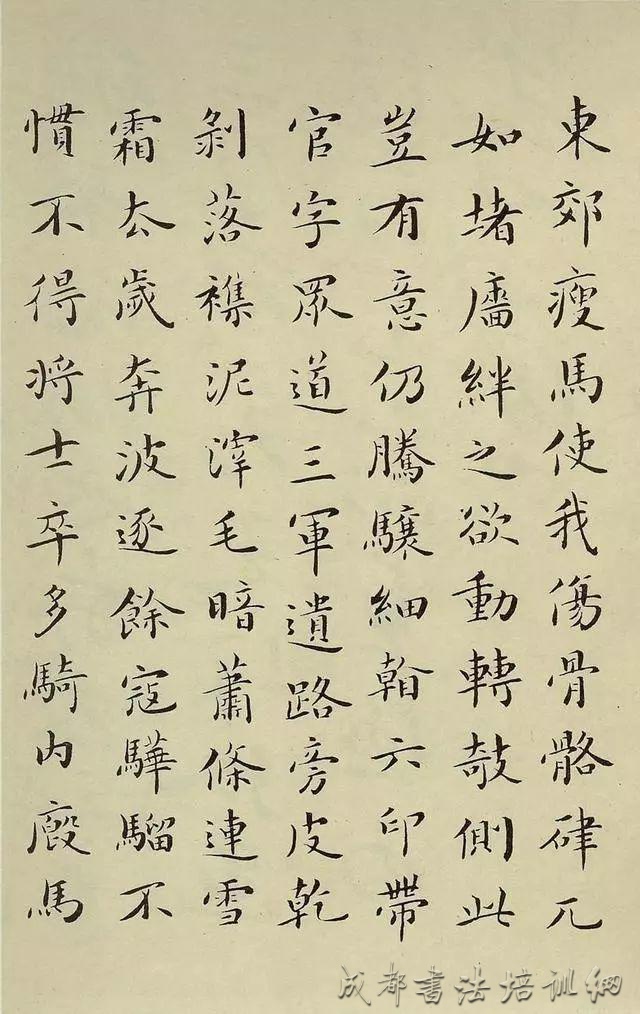 東郊瘦馬使我傷骨骼硉兀
如堵牆絆之欲動轉欹側此
豈有意仍騰驤細看六印帶
官字眾道三軍遺路旁皮乾
剝落襍泥滓毛暗蕭條連雪
霜去歲奔波逐餘寇驊騮不
慣不得将士卒多騎內廄馬
成都书法培训網